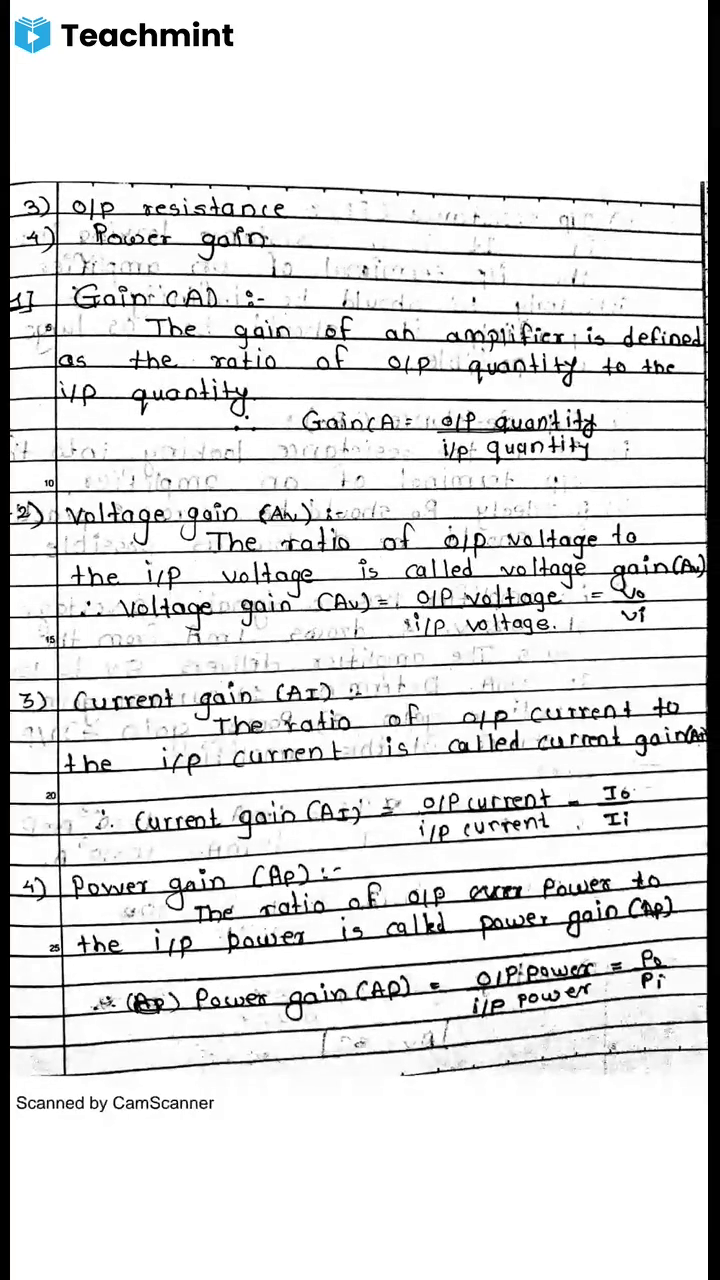 Teachmint
3) O/P resistance
4) Power gain.
1] Gain (A) :-
5 The gain of an amplifier is defined
as the ratio of O/P quantity to the
i/p quantity.
∴ Gain (A = O/P quantity
i/p quantity
10
2) Voltage gain (Av) :-
The ratio of O/P voltage to
the i/p voltage is called voltage gain (Av)
∴ Voltage gain (Av) = O/P voltage = Vo
15 i/p voltage. Vi
3) Current gain (AI) :-
The ratio of o/p current to
the i/p current is called current gain (AI)
20
∴ Current gain (AI) = O/P current = Io
i/p current Ii
4) Power gain (Ap) :-
The ratio of o/p Power to
25 the i/p power is called power gain (Ap)
∴ (Ap) Power gain (AP) = O/P power = Po
i/p power Pi
Scanned by CamScanner